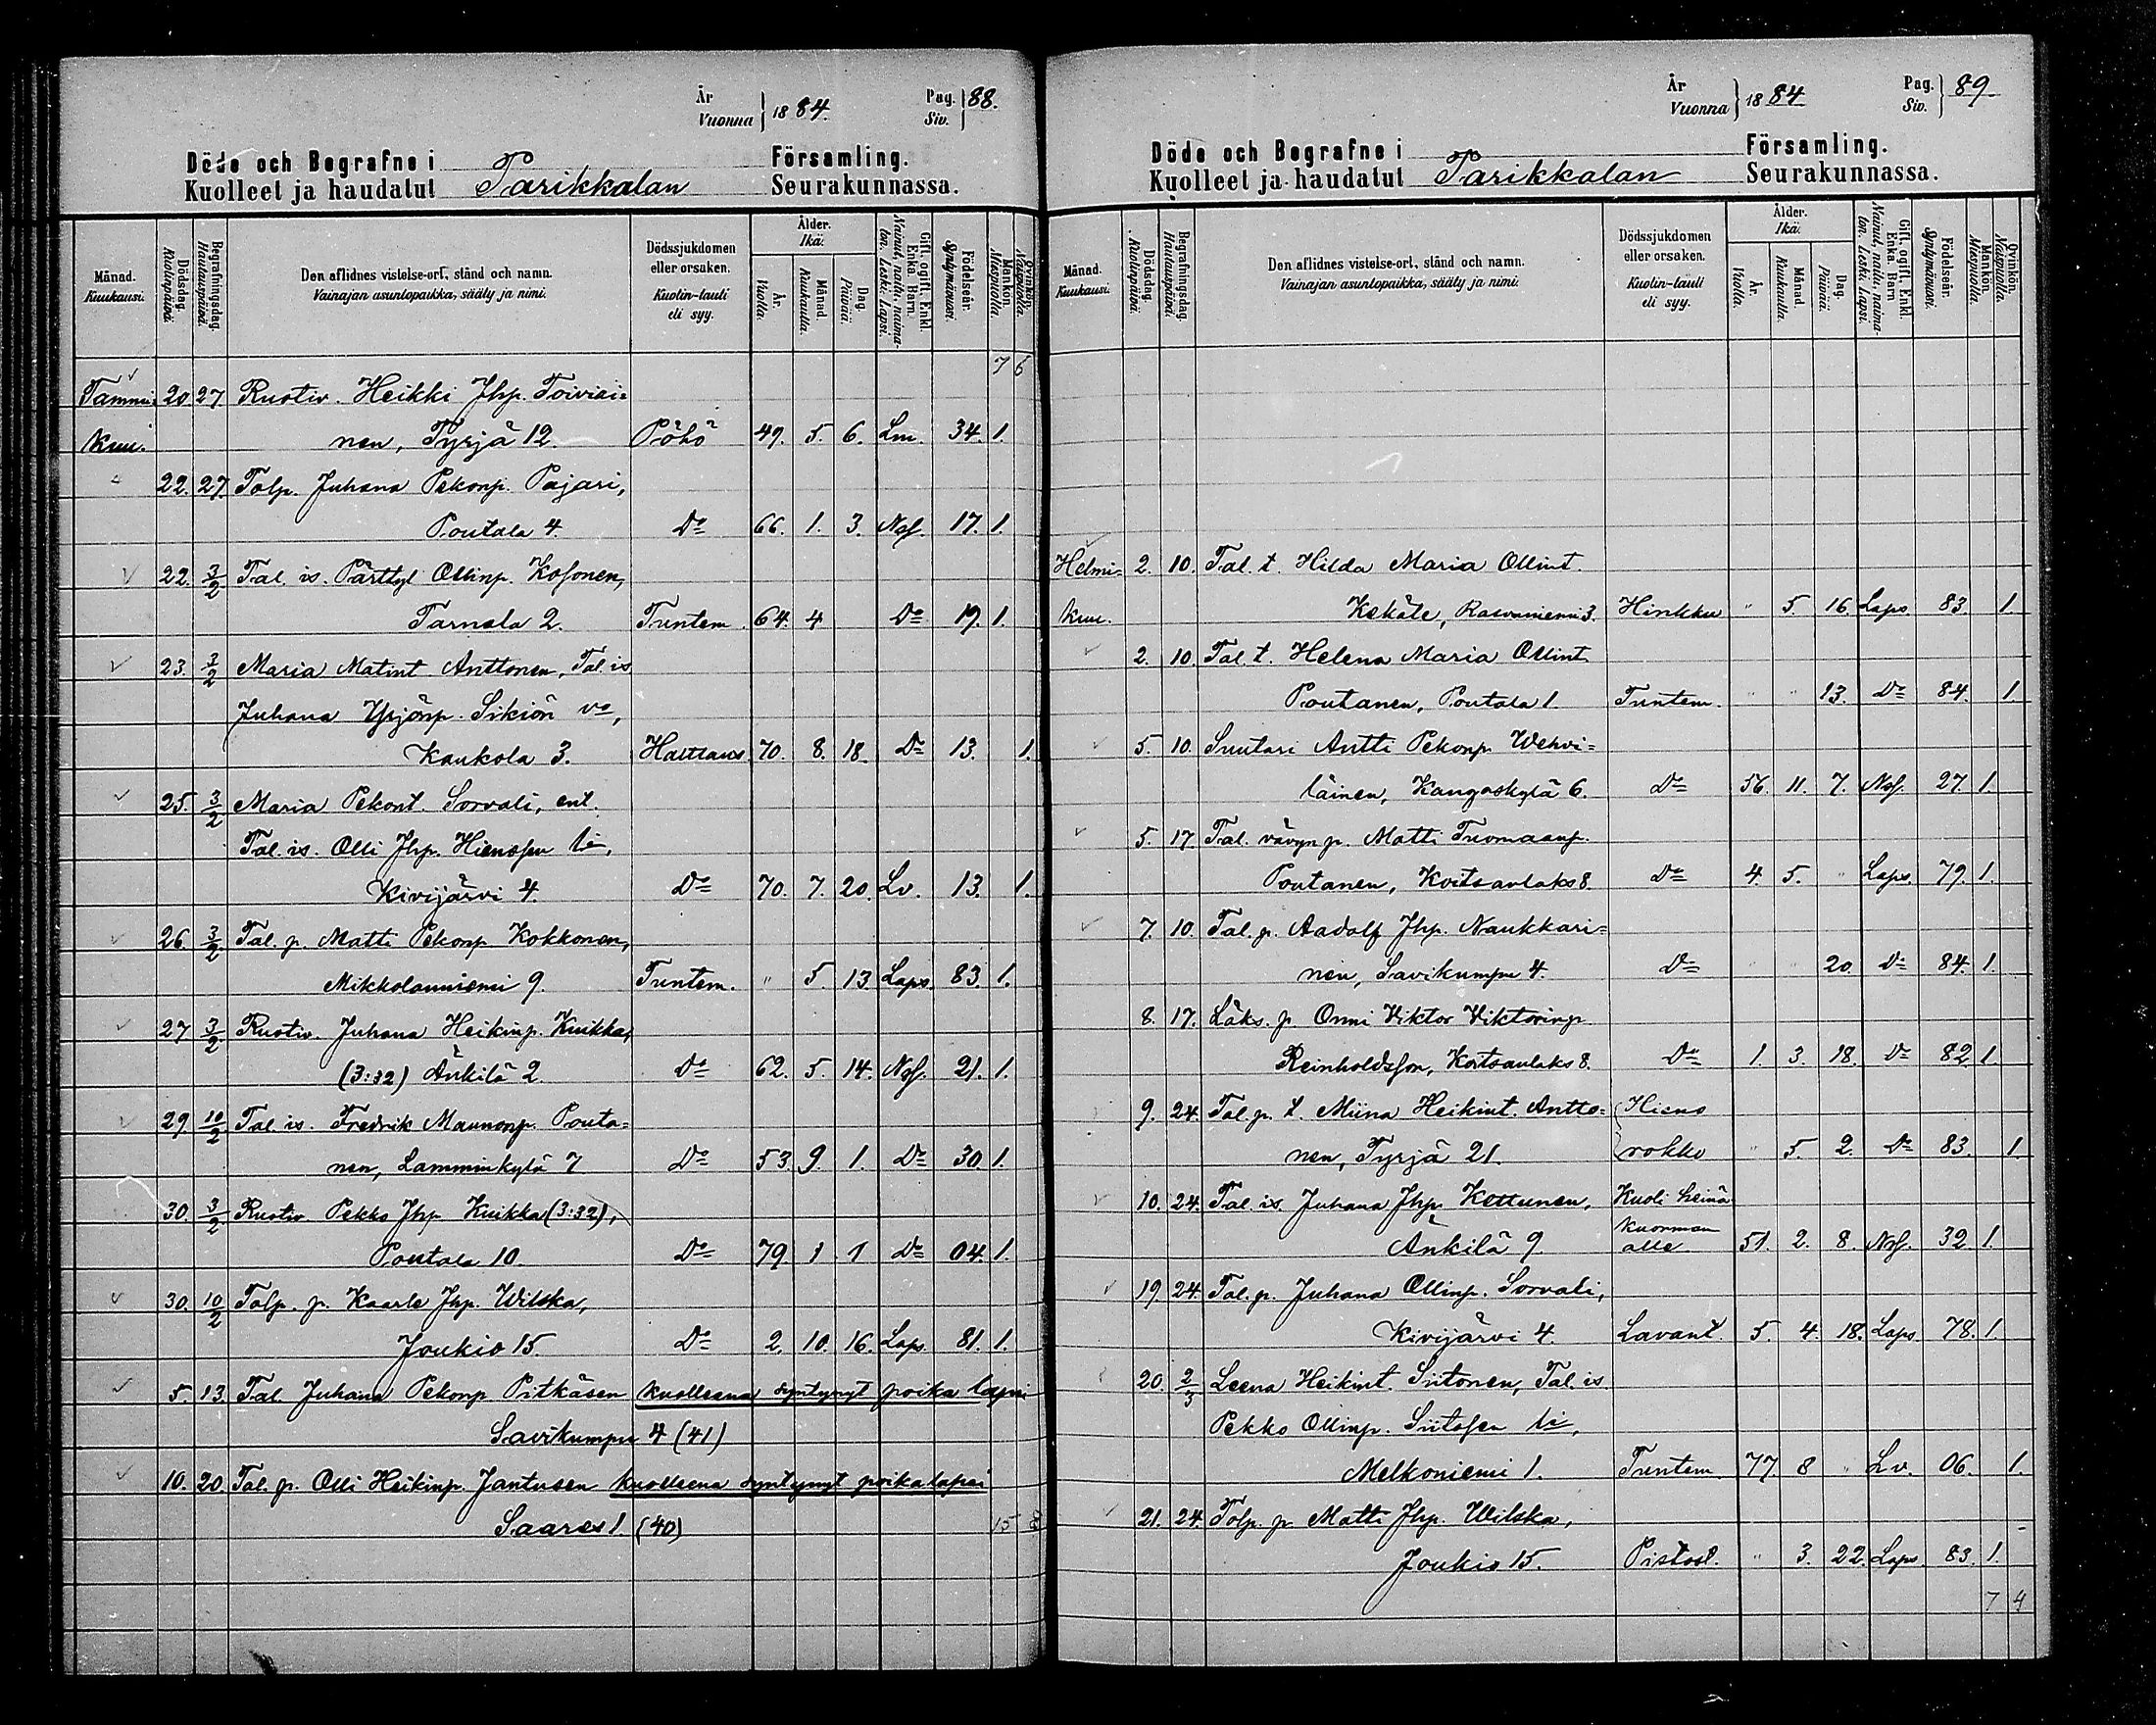 År Vuonna } 1884. Pag. Siv. } 88.
Döde och Begrafne i Församling.
Kuolleet ja haudatut Parikkalan Seurakunnassa.
Månad. Kuukausi. Dödsdag. Kuolinpäivä. Begrafningsdag. Hautauspäivä. Den aflidnes vistelse-ort, stånd och namn. Vainajan asuntopaikka, sääty ja nimi. Dödssjukdomen eller orsaken. Kuolin-tauti eli syy. Ålder. Ikä. År. Vuotta. Månad. Kuukautta. Dag. Päivää. Gift, ogift, Enkl. Enka, Barn. Nainut, naitu, naimaton, Leski, Lapsi. Födelseår. Syntymävuosi. Mankön. Miespuolia. Qvinkön. Naispuolia.
7 6
Tammi= 20. 27 Rustiv. Heikki Jhp. Toiviai=
kuu. nen, Tyrjä 12. Pöhö 49. 5. 6. Lm. 34. 1.
22. 27 Tolp. Juhana Pekonp. Pajari,
Poutala 4. Do 66. 1. 3. Nss. 17. 1.
22. 3/2 Tal. is. Pärttyl Ollinp. Kosonen,
Tarnala 2. Tuntem. 64. 4 Do 19. 1.
23. 3/2 Maria Matint Anttonen, Tal. is
Juhana Yrjönp. Sikiön vo,
Kaukola 3. Halltaus. 70. 8. 18. Do 13. 1.
25. 3/2 Maria Pekont. Sorvali, ent.
Tal. is. Olli Jhp. Hienosen li,
Kivijärvi 4. Do 70. 7. 20. Lv. 13. 1.
26. 3/2 Tal. p. Matti Pekonp Kokkonen,
Mikkolanniemi 9. Tuntem. " 5 13. Laps. 83. 1.
27 3/2 Rustiv. Juhana Heikinp. Kuikka,
(3:32) Änkilä 2. Do 62. 5. 14. Nss. 21. 1.
29. 10/2 Tal. is. Fredrik Maunonp. Pouta=
nen, Lamminkylä 7 Do 53. 9. 1. Do 30. 1.
30. 3/2 Rustiv. Pekko Jhp Kuikka (3:32),
Poutala 10. Do 79. 1. 1 Do 04. 1.
30. 10/2 Tolp. p. Kaarle Jhp. Wilska,
Joukio 15. Do 2. 10. 16. Laps. 81. 1.
5. 13. Tal. Juhana Pekonp Pitkäsen kuolleena syntynyt poika lapsi
Savikumpu 4 (41)
10. 20. Tal. p. Olli Heikinp. Jantusen kuolleena syntynyt poikalapsi
Saares 1 (40) 15
År Vuonna } 1884 Pag. Siv. } 89
Döde och Begrafne i Församling.
Kuolleet ja haudatut Parikkalan Seurakunnassa.
Månad. Kuukausi. Dödsdag. Kuolinpäivä. Begrafningsdag. Hautauspäivä. Den aflidnes vistelse-ort, stånd och namn. Vainajan asuntopaikka, sääty ja nimi. Dödssjukdomen eller orsaken. Kuolin-tauti eli syy. Ålder. Ikä. År. Vuotta. Månad. Kuukautta. Dag. Päivää. Gift, ogift, Enkl. Enka, Barn. Nainut, naitu, naimaton, Leski, Lapsi. Födelseår. Syntymävuosi. Mankön. Miespuolia. Qvinkön. Naispuolia.
Helmi= 2. 10. Tal. t. Hilda Maria Ollint.
kuu. Kekäle, Rasvaniemi 3. Hinkku " 5. 16. Laps. 83. 1.
2. 10. Tal. t. Helena Maria Ollint
Poutanen, Poutala 1. Tuntem. " " 13. Do 84. 1.
5. 10. Suutari Antti Pekonp. Wehvi=
läinen, Kangaskylä 6. Do 56. 11. 7. Nss. 27. 1.
5. 17. Tal. vävyn p. Matti Tuomaanp.
Poutanen, Koitsanlaks 8. Do 4. 5. " Laps. 79. 1.
7. 10. Tal. p. Aadolf Jhp. Naukkari=
nen, Savikumpu 4. Do " " 20. Do 84. 1.
8. 17. Läks. p Onni Viktor Viktorinp
Reinholdsson, Koitsanlaks 8. Do 1. 3. 18. Do 82. 1.
9. 24. Tal. p. t. Miina Heikint. Antto= Hieno
nen, Tyrjä 21. rokko " 5. 2. Do 83. 1.
10. 24. Tal. is. Juhana Jhp. Kettunen, Kuoli heinä
kuorman
Änkilä 9. alle 51. 2. 8. Nss. 32. 1.
19. 24. Tal. p. Juhana Ollinp. Sorvali,
Kivijärvi 4. Lavant. 5. 4. 18. Laps. 78. 1.
20. 2/3 Leena Heikint. Siitonen, Tal. is.
Pekko Ollinp. Siitosen li,
Melkoniemi 1. Tuntem. 77. 8 " Lv. 06. 1.
21. 24. Tolp. p. Matti Jhp. Wilska,
Joukio 15. Pistost. " 3. 22. Laps. 83. 1.
7 4